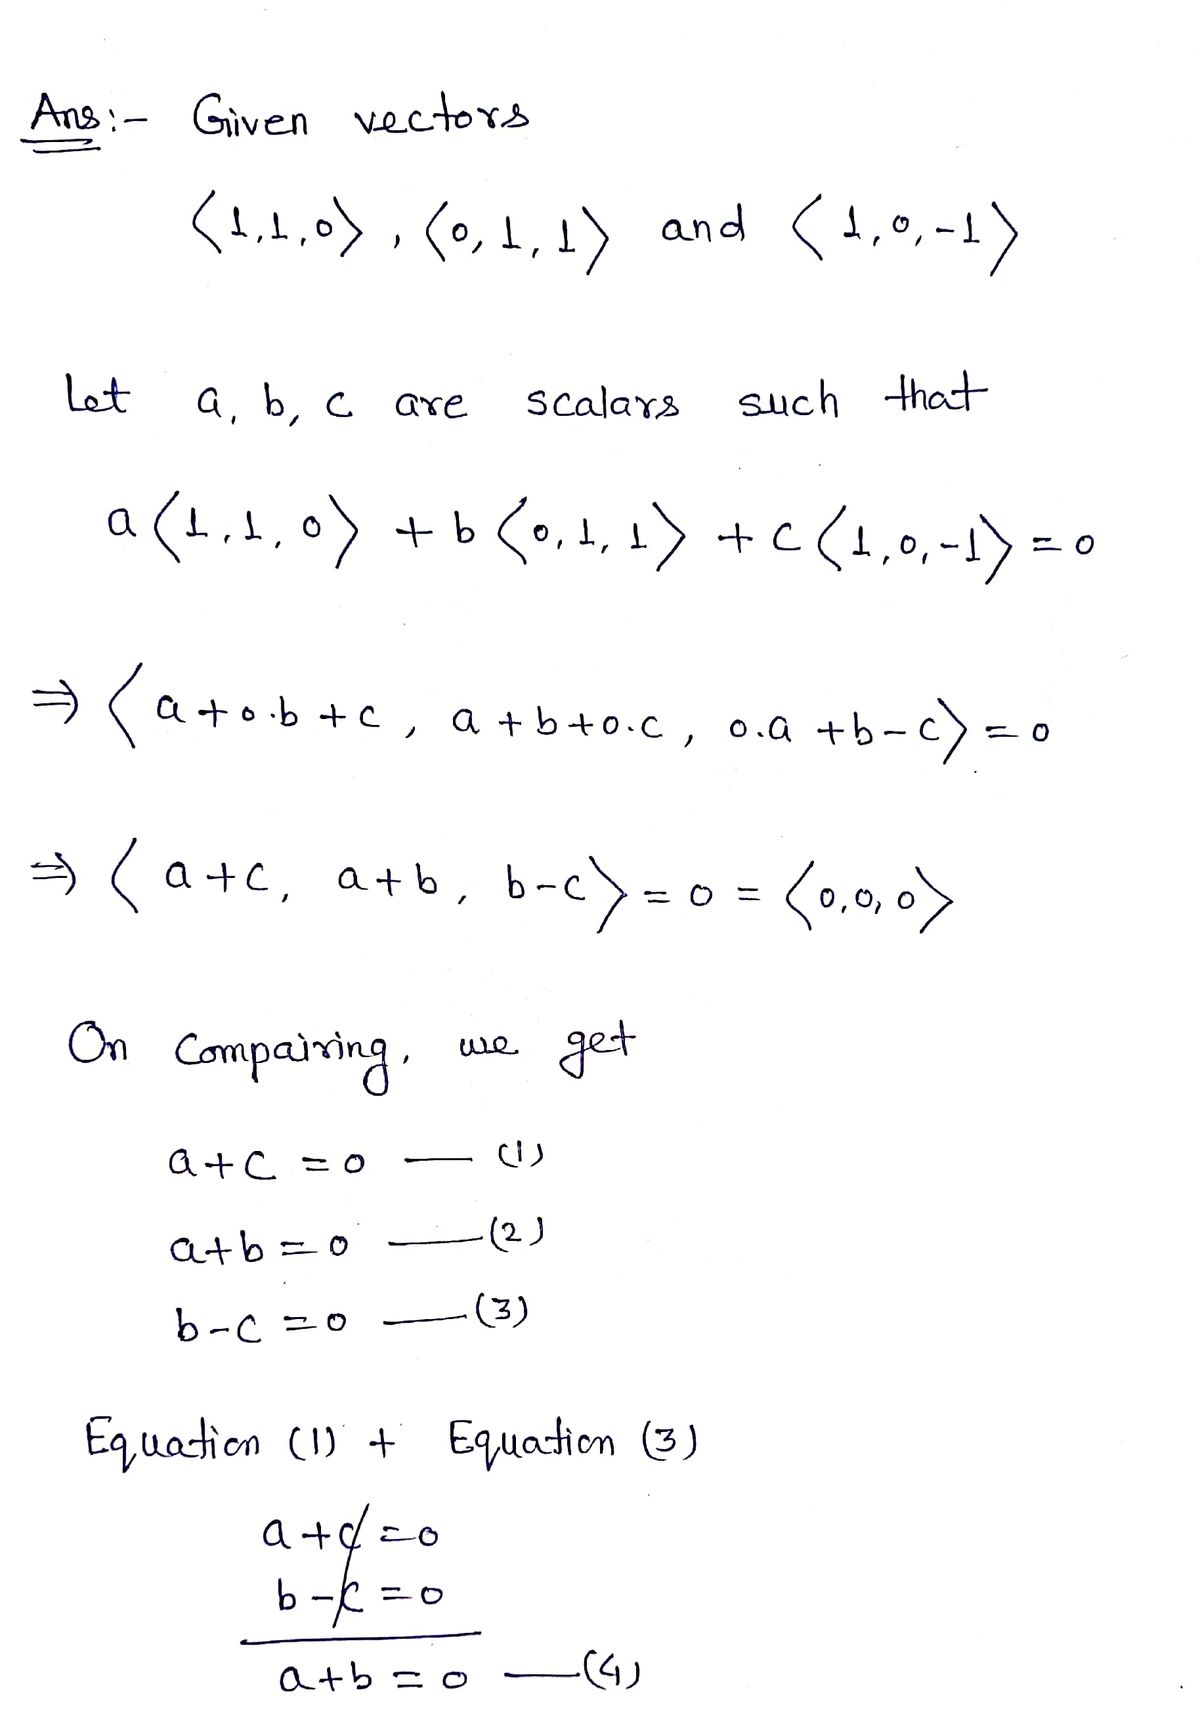 Ans:- Given vectors
⟨1,1,0⟩, ⟨0,1,1⟩ and ⟨1,0,-1⟩
Let a, b, c are scalars such that
a⟨1,1,0⟩ + b⟨0,1,1⟩ + c⟨1,0,-1⟩ = 0
⇒ ⟨a+0.b+c, a+b+0.c, 0.a+b-c⟩ = 0
⇒ ⟨a+c, a+b, b-c⟩ = 0 = ⟨0,0,0⟩
On compairing, we get
a+c = 0 — (1)
a+b = 0 — (2)
b-c = 0 — (3)
Equation (1) + Equation (3)
a+c = 0
b-c = 0
a+b = 0 — (4)